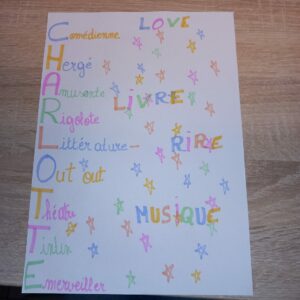 LOVE
Comédienne
Hergé
Amusante
LIVRE
Rigolote
Littérature - RIRE
Out out
Théâtre MUSIQUE
Tintin
Emerveiller